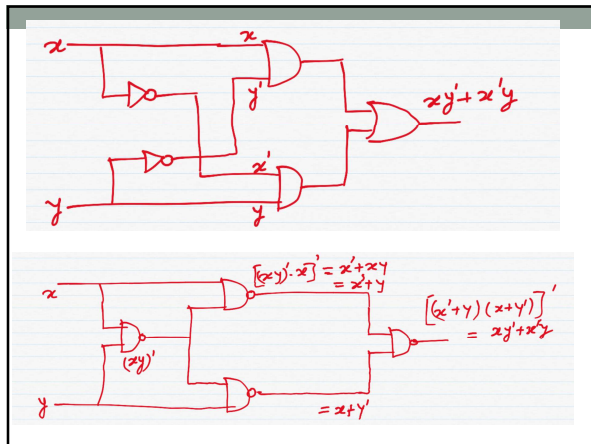 x x
y'
xy' + x'y
x'
y y
[(xy)'·x]' = x'+xy
= x'+y
x
[(x'+y) (x+y')]'
= xy'+x'y
(xy)'
y
= x+y'